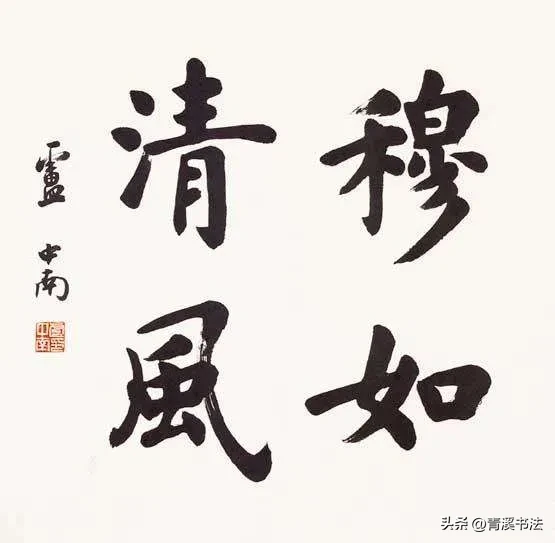 穆如
清風
盧中南
头条@青溪书法